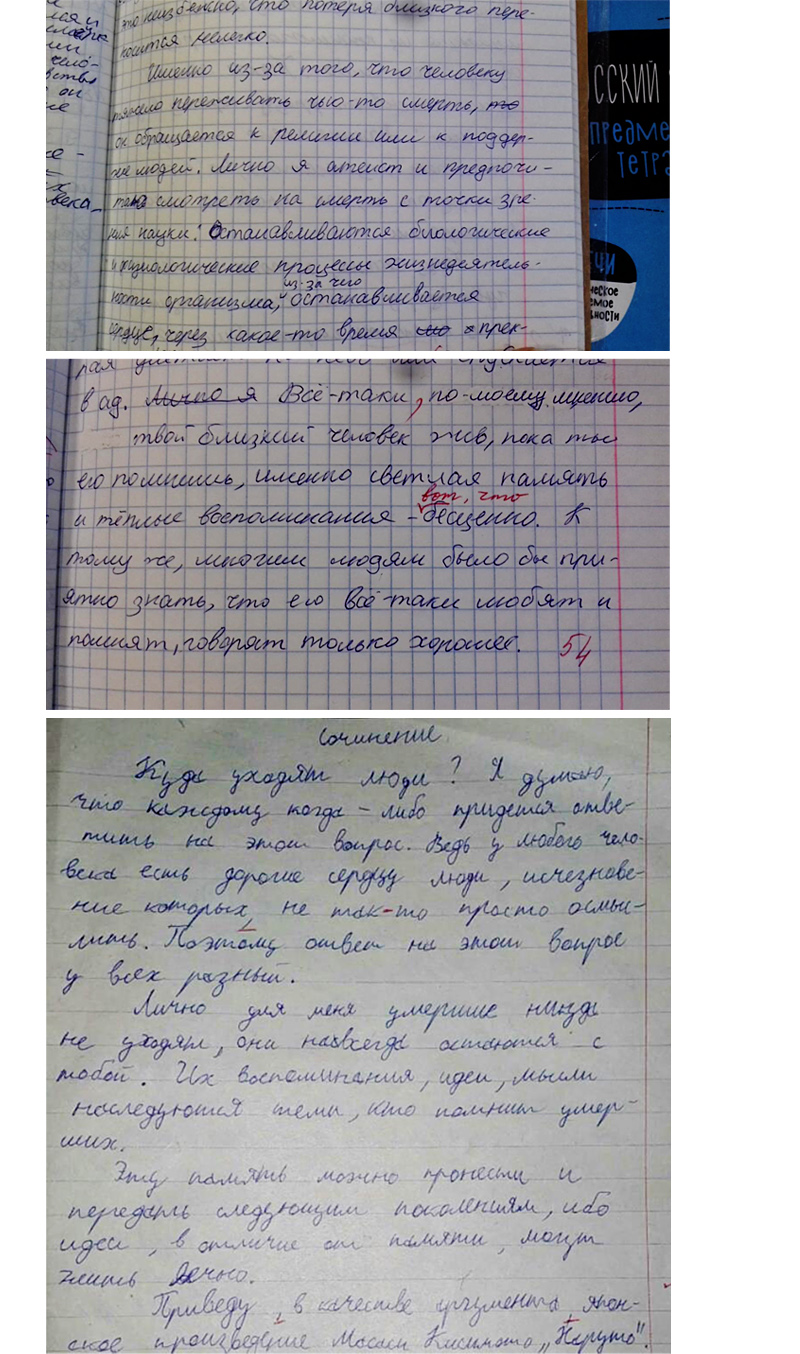 это неизбежно, что потеря близкого пере-
носится нелегко.
Именно из-за того, что человеку
тяжело переживать чью-то смерть, то
он обращается к религии или к поддер-
жке людей. Лично я атеист и предпочи-
таю смотреть на смерть с точки зре-
ния науки: Останавливаются биологические
и физиологические процессы жизнедеятель-
из-за чего
ности организма, останавливается
сердце, через какое-то время прек-
ССКИЙ
ПРЕДМЕ
ТЕТР
в ад. Лично я Всё-таки, по-моему мнению,
твой близкий человек жив, пока ты
его помнишь, именно светлая память
вот, что
и тёплые воспоминания - бесценно. К
тому же, многим людям было бы при-
ятно знать, что его всё-таки любят и
помнят, говорят только хорошее. 54
Сочинение.
Куда уходят люди? Я думаю,
что каждому когда-либо придется отве-
тить на этот вопрос. Ведь у любого чело-
века есть дорогие сердцу люди, исчезнове-
ние которых, не так-то просто осмы-
лить. Поэтому ответ на этот вопрос
у всех разный.
Лично для меня умершие никуда
не уходят, они навсегда остаются с
тобой. Их воспоминания, идеи, мысли
наследуются теми, кто помнит умер-
ших.
Эту память можно пронести и
передать следующим поколениям, ибо
идеи, в отличие от памяти, могут
жить вечно.
Приведу, в качестве аргумента, япон-
ское произведение Масаси Кисимото „Наруто".